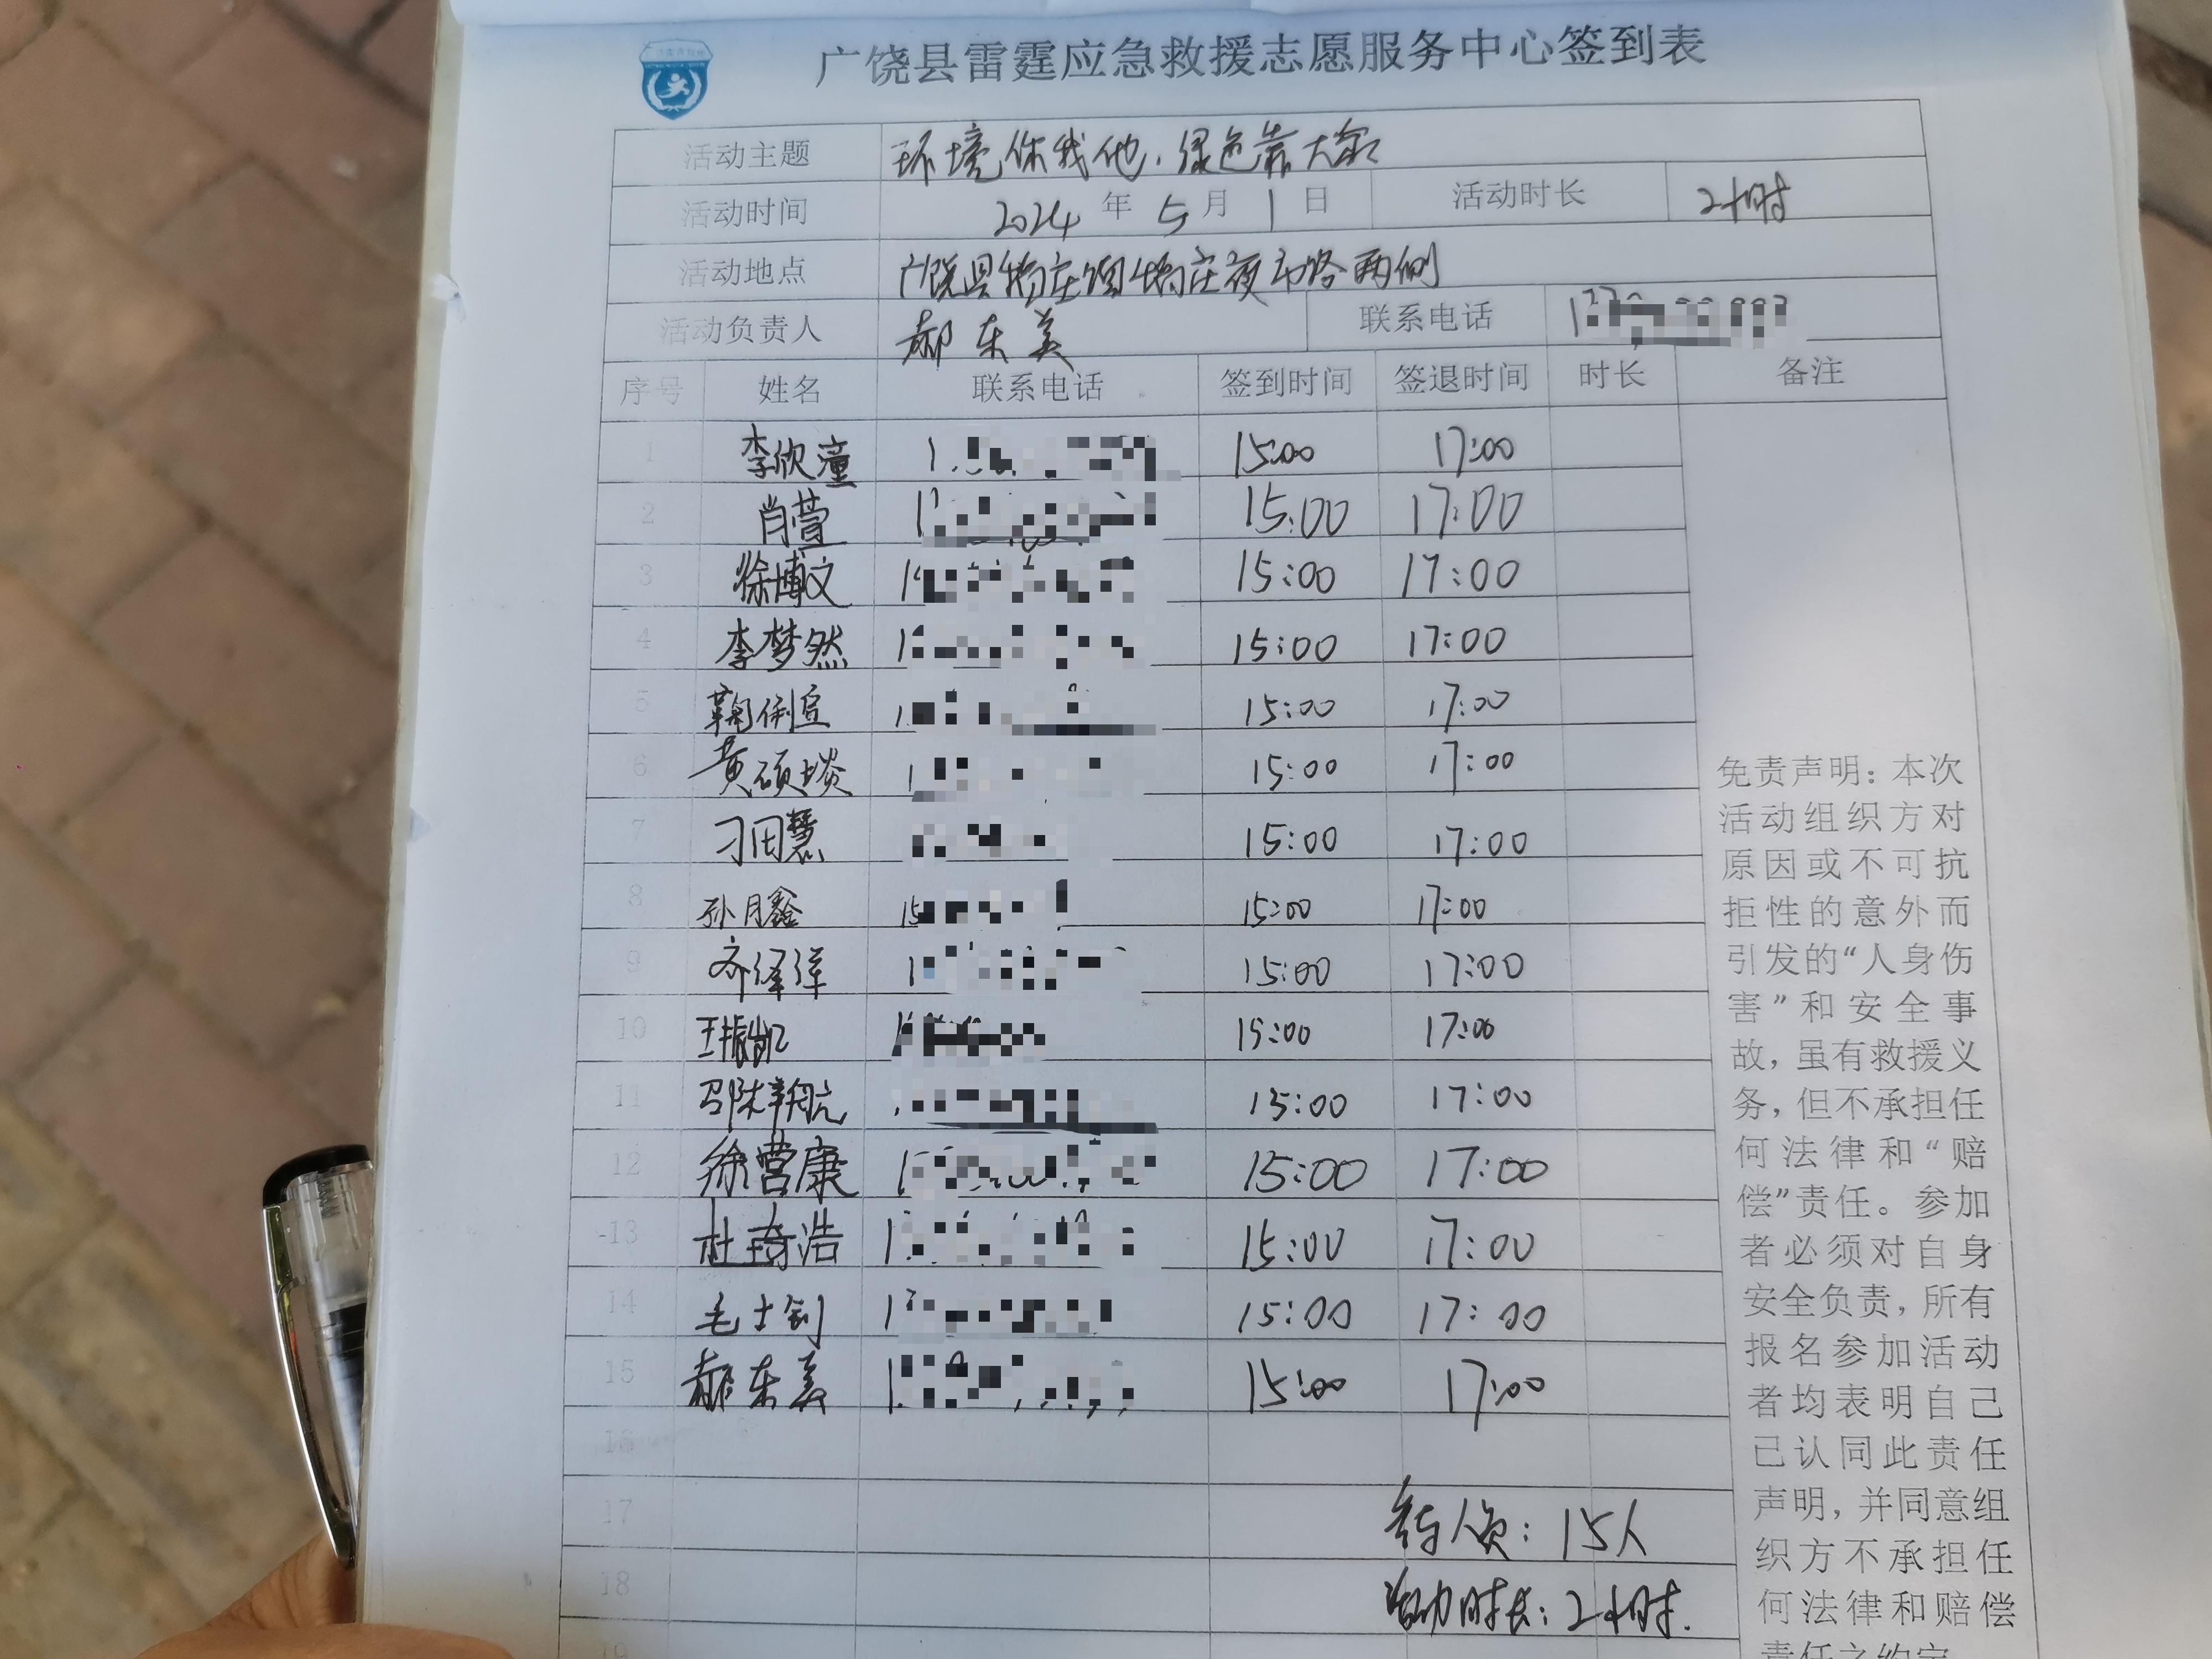 广饶县雷霆应急救援志愿服务中心签到表
活动主题 环境你我他，绿色靠大家
活动时间 2024年5月1日 活动时长 2小时
活动地点 广饶县 夜市路两侧
活动负责人 郝东美 联系电话
序号 姓名 联系电话 签到时间 签退时间 时长 备注
1 李欣潼 15:00 17:00
2 肖萱 15:00 17:00
3 徐博文 15:00 17:00
4 李梦然 15:00 17:00
5 鞠俐宣 15:00 17:00
6 黄硕 15:00 17:00
7 刁田慧 15:00 17:00
8 孙月鑫 15:00 17:00
9 齐泽洋 15:00 17:00
10 王振凯 15:00 17:00
11 15:00 17:00
12 徐营康 15:00 17:00
13 杜琦浩 15:00 17:00
14 毛士钊 15:00 17:00
15 郝东美 15:00 17:00
16
17 人员：15人
18 活动时长：2小时.
19
免责声明：本次
活动组织方对
原因或不可抗
拒性的意外而
引发的“人身伤
害”和安全事
故，虽有救援义
务，但不承担任
何法律和“赔
偿”责任。参加
者必须对自身
安全负责，所有
报名参加活动
者均表明自己
已认同此责任
声明，并同意组
织方不承担任
何法律和赔偿
责任之约定